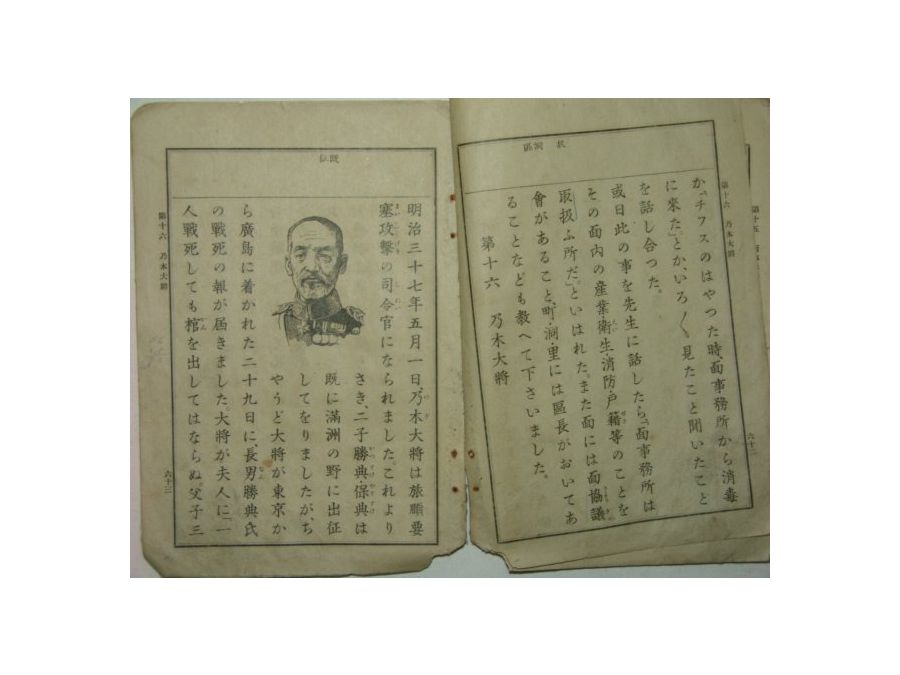 扱 洞 區
か「チフスのはやつた時、面事務所から消毒
に來た」とか、いろ〱見たこと聞いたこと
を話し合つた。
或日此の事を先生に話したら、「面事務所は
その面內の產業・衞生・消防・戶籍等のことを
取扱ふ所だ。」といはれた。また面には面協議
會があること、町・洞・里には區長がおいてあ
ることなども敎へて下さいました。
第十六 乃木大將
第十六 乃木大將
六十二
既
明治三十七年五月一日、乃木大將は旅順要
塞攻擊の司令官になられました。これより
さき、二子勝典・保典は
既に滿洲の野に出征
してをりましたが、ち
やうど大將が東京か
ら廣島に着かれた二十九日に、長男勝典氏
の戰死の報が屆きました。大將が夫人に「一
人戰死しても棺を出してはならぬ。父子三
第十六 乃木大將
六十三